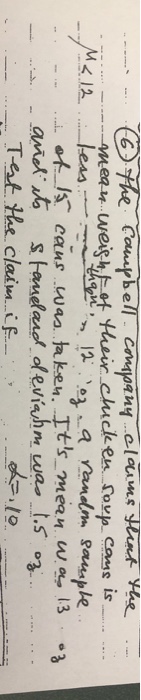 ⑥ The Campbell company claims that the
mean weight of their chicken soup cans is
μ<12 less than 12 oz a random sample
of 15 cans was taken. It's mean was 13 oz
and its standard deviation was 1.5 oz
Test the claim if α=.10